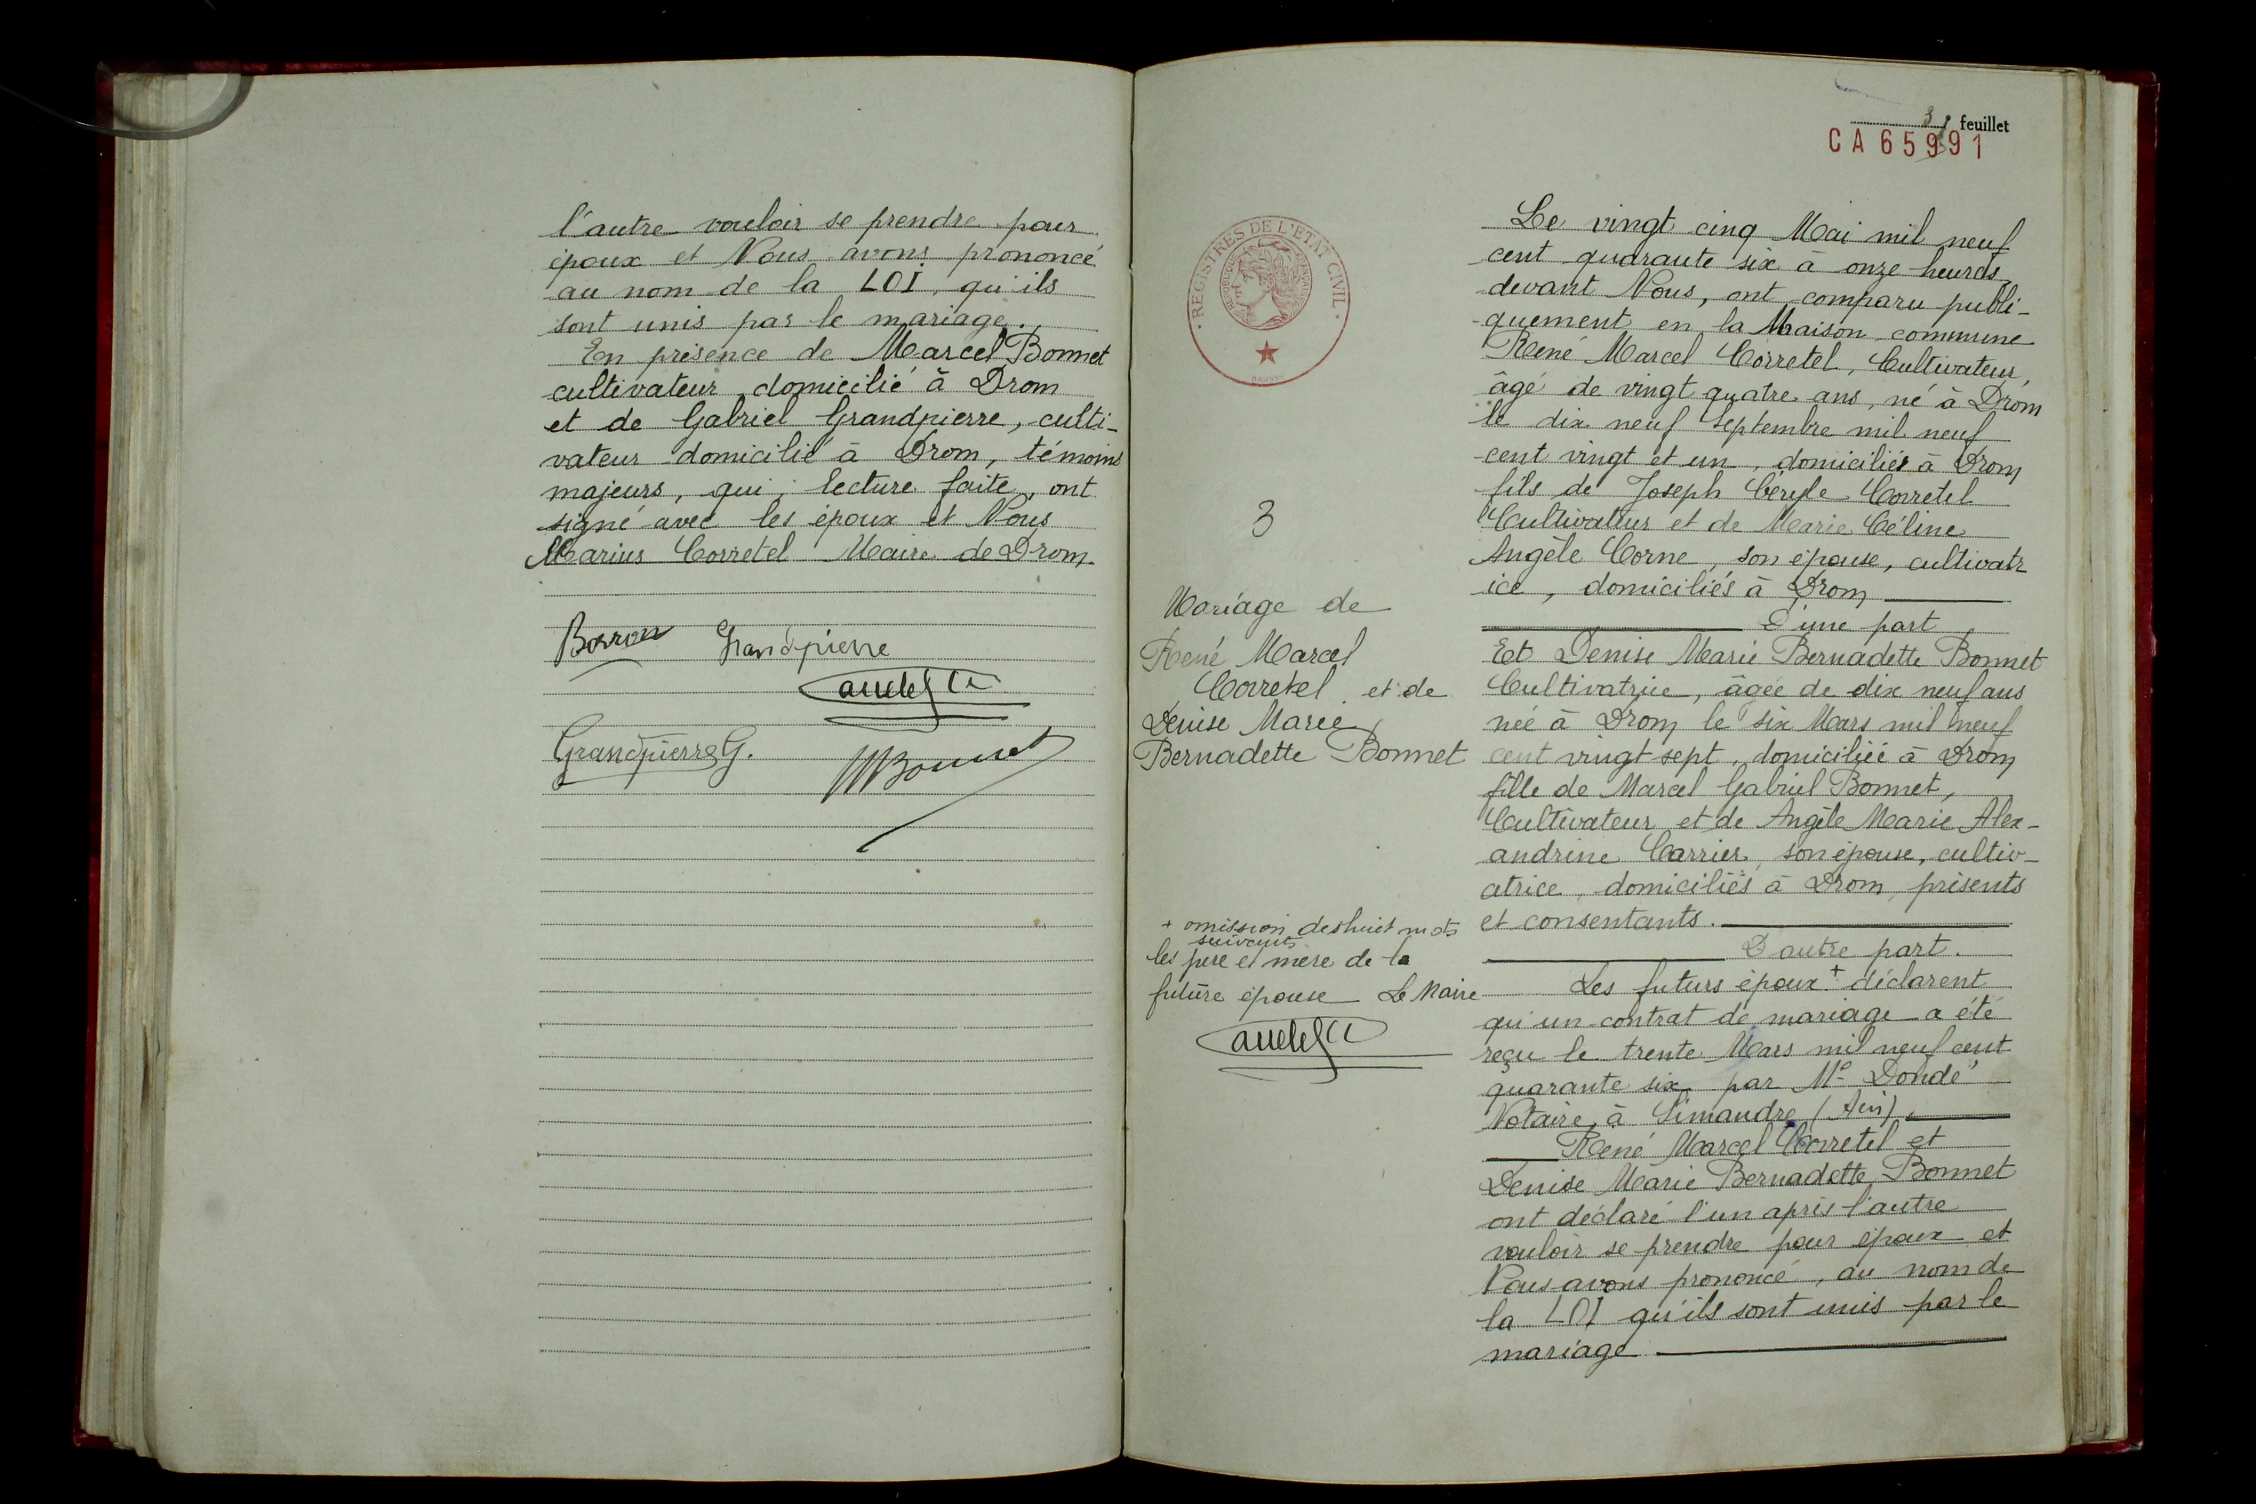 l'autre vouloir se prendre pour
époux et Nous avons prononcé
au nom de la LOI, qu'ils
sont unis par le mariage.
En présence de Marcel Bonnet
cultivateur domicilié à Drom
et de Gabriel Grandpierre, culti-
vateur domicilié à Drom, témoins
majeurs, qui, lecture faite, ont
signé avec les époux et Nous
Marius Corretel Maire de Drom.
Borron Grandpierre
Grandpierre G.
MBonnet
feuillet
CA 65991
REGISTRES DE L'ETAT CIVIL
3
Mariage de
René Marcel
Corretel et de
Denise Marie
Bernadette Bonnet
+ omission des huit mots
suivants
les père et mère de la
future épouse Le Maire
Le vingt cinq Mai mil neuf
cent quarante six à onze heures
devant Nous, ont comparu publi-
quement en la Maison commune
René Marcel Corretel, Cultivateur,
âgé de vingt quatre ans, né à Drom
le dix neuf Septembre mil neuf
cent vingt et un, domiciliés à Drom
fils de Joseph Corretel
Cultivateur et de Marie Céline
Angèle Corne, son épouse, cultivatr
ice, domiciliés à Drom
D'une part
Et Denise Marie Bernadette Bonnet
Cultivatrice, âgée de dix neuf ans
née à Drom le six Mars mil neuf
cent vingt sept, domiciliée à Drom
fille de Marcel Gabriel Bonnet,
Cultivateur et de Angèle Marie Alex-
andrine Carrier, son épouse, cultiv-
atrice, domiciliés à Drom, présents
et consentants.
D'autre part.
Les futurs époux + déclarent
qu'un contrat de mariage a été
reçu le trente Mars mil neuf cent
quarante six par Me Dondé
Notaire à Simandre (Ain).
René Marcel Corretel et
Denise Marie Bernadette Bonnet
ont déclaré l'un après l'autre
vouloir se prendre pour époux et
Nous avons prononcé, au nom de
la LOI qu'ils sont unis par le
mariage